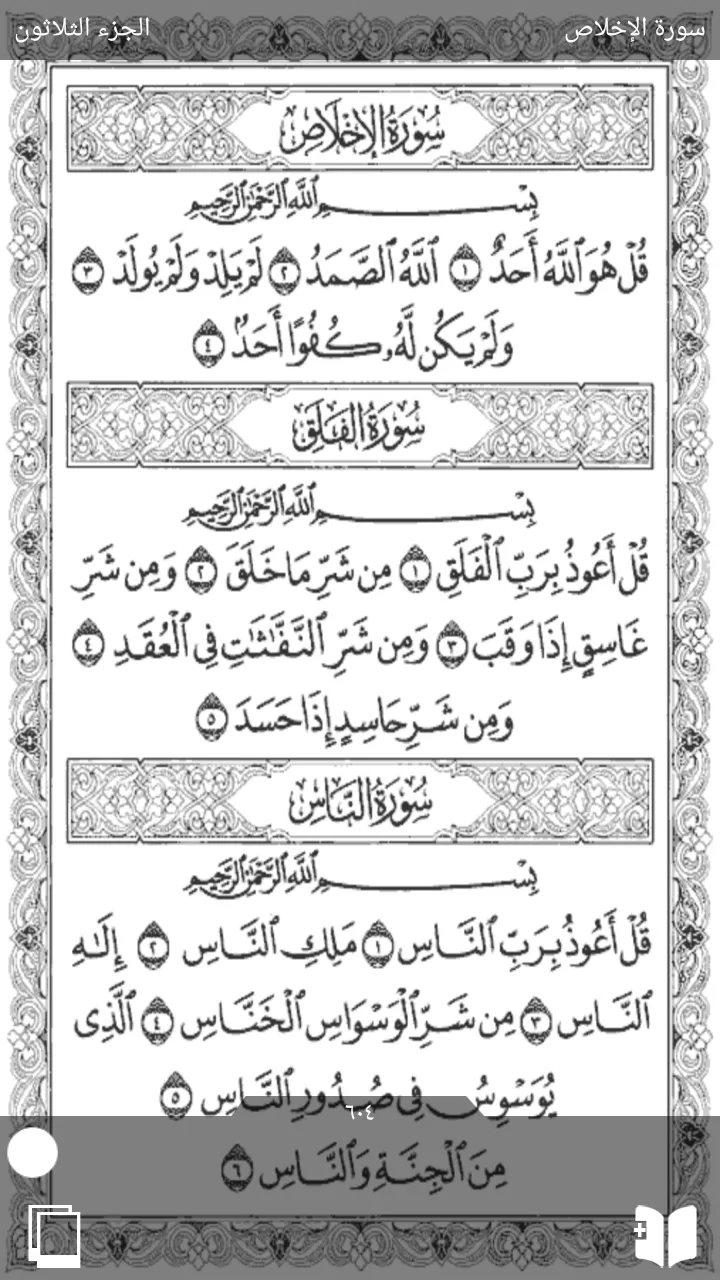 سورة الإخلاص
الجزء الثلاثون
سُورَةُ الإِخْلَاصِ
بِسْمِ اللَّهِ الرَّحْمَٰنِ الرَّحِيمِ
قُلْ هُوَ ٱللَّهُ أَحَدٌ ١ ٱللَّهُ ٱلصَّمَدُ ٢ لَمْ يَلِدْ وَلَمْ يُولَدْ ٣
وَلَمْ يَكُن لَّهُۥ كُفُوًا أَحَدٌۢ ٤
سُورَةُ الْفَلَقِ
بِسْمِ اللَّهِ الرَّحْمَٰنِ الرَّحِيمِ
قُلْ أَعُوذُ بِرَبِّ ٱلْفَلَقِ ١ مِن شَرِّ مَا خَلَقَ ٢ وَمِن شَرِّ
غَاسِقٍ إِذَا وَقَبَ ٣ وَمِن شَرِّ ٱلنَّفَّٰثَٰتِ فِى ٱلْعُقَدِ ٤
وَمِن شَرِّ حَاسِدٍ إِذَا حَسَدَ ٥
سُورَةُ النَّاسِ
بِسْمِ اللَّهِ الرَّحْمَٰنِ الرَّحِيمِ
قُلْ أَعُوذُ بِرَبِّ ٱلنَّاسِ ١ مَلِكِ ٱلنَّاسِ ٢ إِلَٰهِ
ٱلنَّاسِ ٣ مِن شَرِّ ٱلْوَسْوَاسِ ٱلْخَنَّاسِ ٤ ٱلَّذِى
يُوَسْوِسُ فِى صُدُورِ ٱلنَّاسِ ٥
٦٠٤
مِنَ ٱلْجِنَّةِ وَٱلنَّاسِ ٦